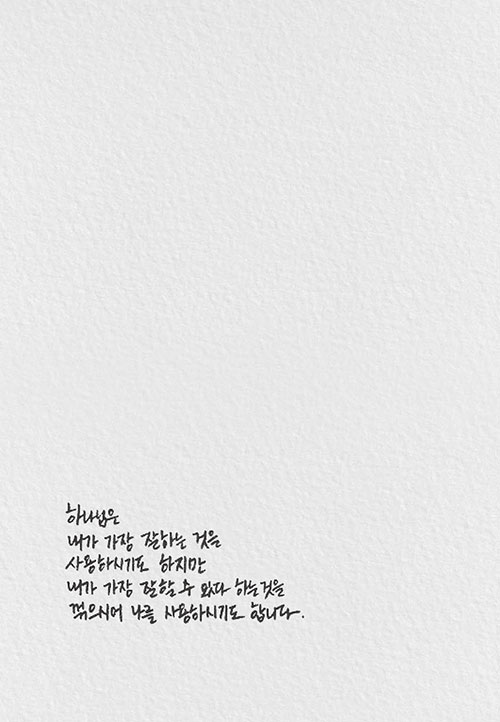 하나님은
내가 가장 잘하는 것을
사용하시기도 하지만
내가 가장 잘할 수 있다 하는것을
꺾으시어 나를 사용하시기도 합니다.